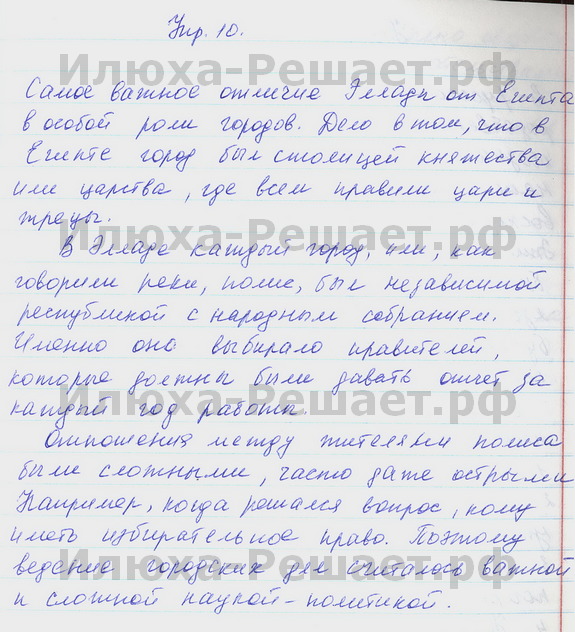 Упр. 10.
Самое важное отличие Эллады от Египта
в особой роли городов. Дело в том, что в
Египте город был столицей княжества
или царства, где всем правили цари и
жрецы.
В Элладе каждый город, или, как
говорили греки, полис, был независимой
республикой с народным собранием.
Именно оно выбирало правителей,
которые должны были давать отчет за
каждый год работы.
Отношения между жителями полиса
были сложными, часто даже острыми
Например, когда решался вопрос, кому
иметь избирательное право. Поэтому
ведение городских дел считалось важной
и сложной наукой-политикой.
Илюха-Решает.рф
Илюха-Решает.рф
Илюха-Решает.рф
Илюха-Решает.рф